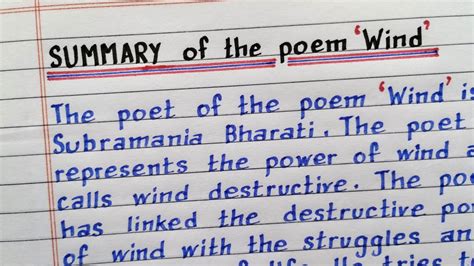 SUMMARY of the poem 'Wind'
The poet of the poem 'Wind' is
Subramania Bharati. The poet
represents the power of wind a
calls wind destructive. The po
has linked the destructive po
of wind with the struggles an
of life. He tries t